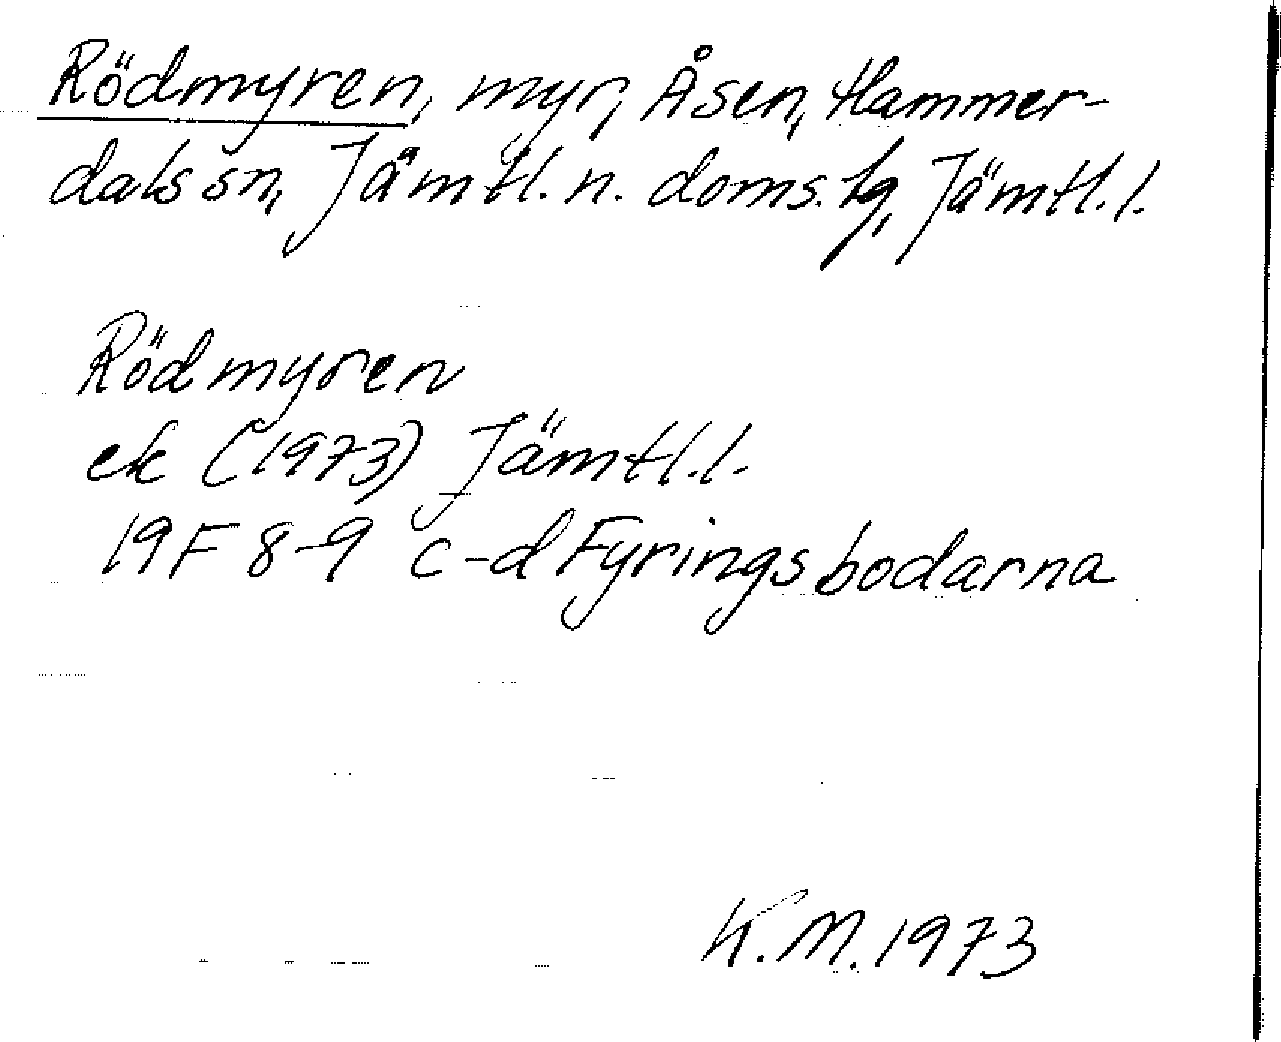 Rödmyren, myr, Åsen, Hammer-
dals sn, Jämtl. n. doms.tg, Jämtl.l.
Rödmyren
ek (1973) Jämtl.l.
19F 8-9 c-d Fyringsbodarna
K.M. 1973